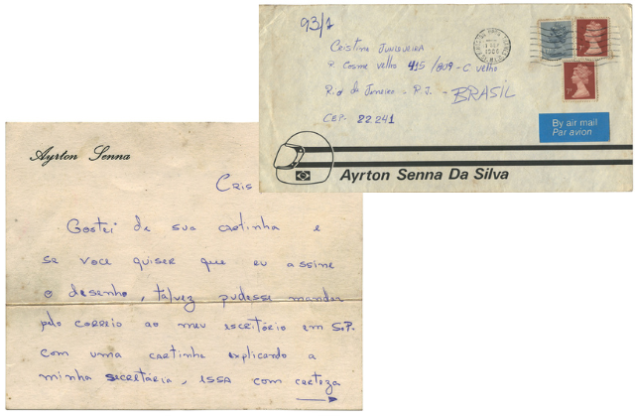 93/1
Cristina Junqueira
R. Cosme Velho 415/809 - C. Velho
Rio de Janeiro - R.J. - BRASIL
CEP- 22.241
1986
By air mail
Par avion
Ayrton Senna Da Silva
Ayrton Senna
Cris
Gostei de sua cartinha e
se você quiser que eu assine
o desenho, talvez pudesse mandar
pelo correio ao meu escritório em S.P.
com uma cartinha explicando a
minha secretária, essa com certeza